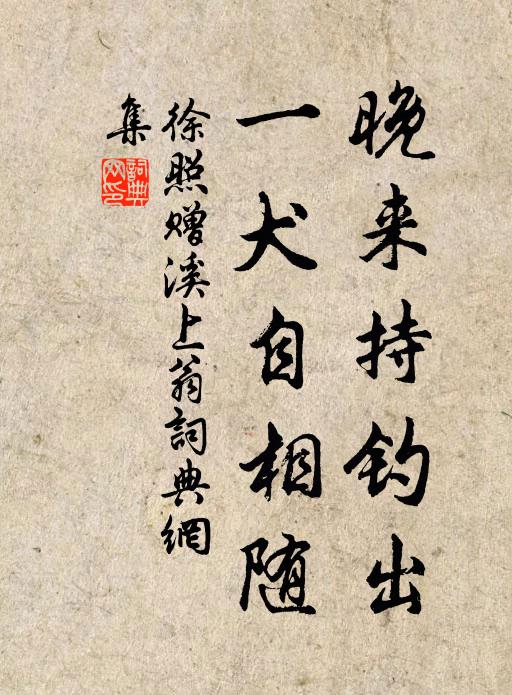 晚来持钓出
一犬自相随
徐照赠溪上翁詞典網
集
詞典
网印